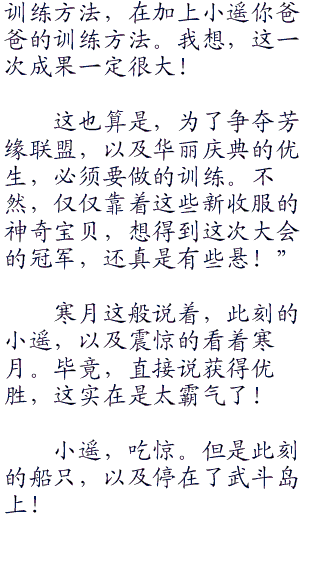 训练方法，在加上小遥你爸
爸的训练方法。我想，这一
次成果一定很大！
这也算是，为了争夺芳
缘联盟，以及华丽庆典的优
生，必须要做的训练。不
然，仅仅靠着这些新收服的
神奇宝贝，想得到这次大会
的冠军，还真是有些悬！”
寒月这般说着，此刻的
小遥，以及震惊的看着寒
月。毕竟，直接说获得优
胜，这实在是太霸气了！
小遥，吃惊。但是此刻
的船只，以及停在了武斗岛
上！